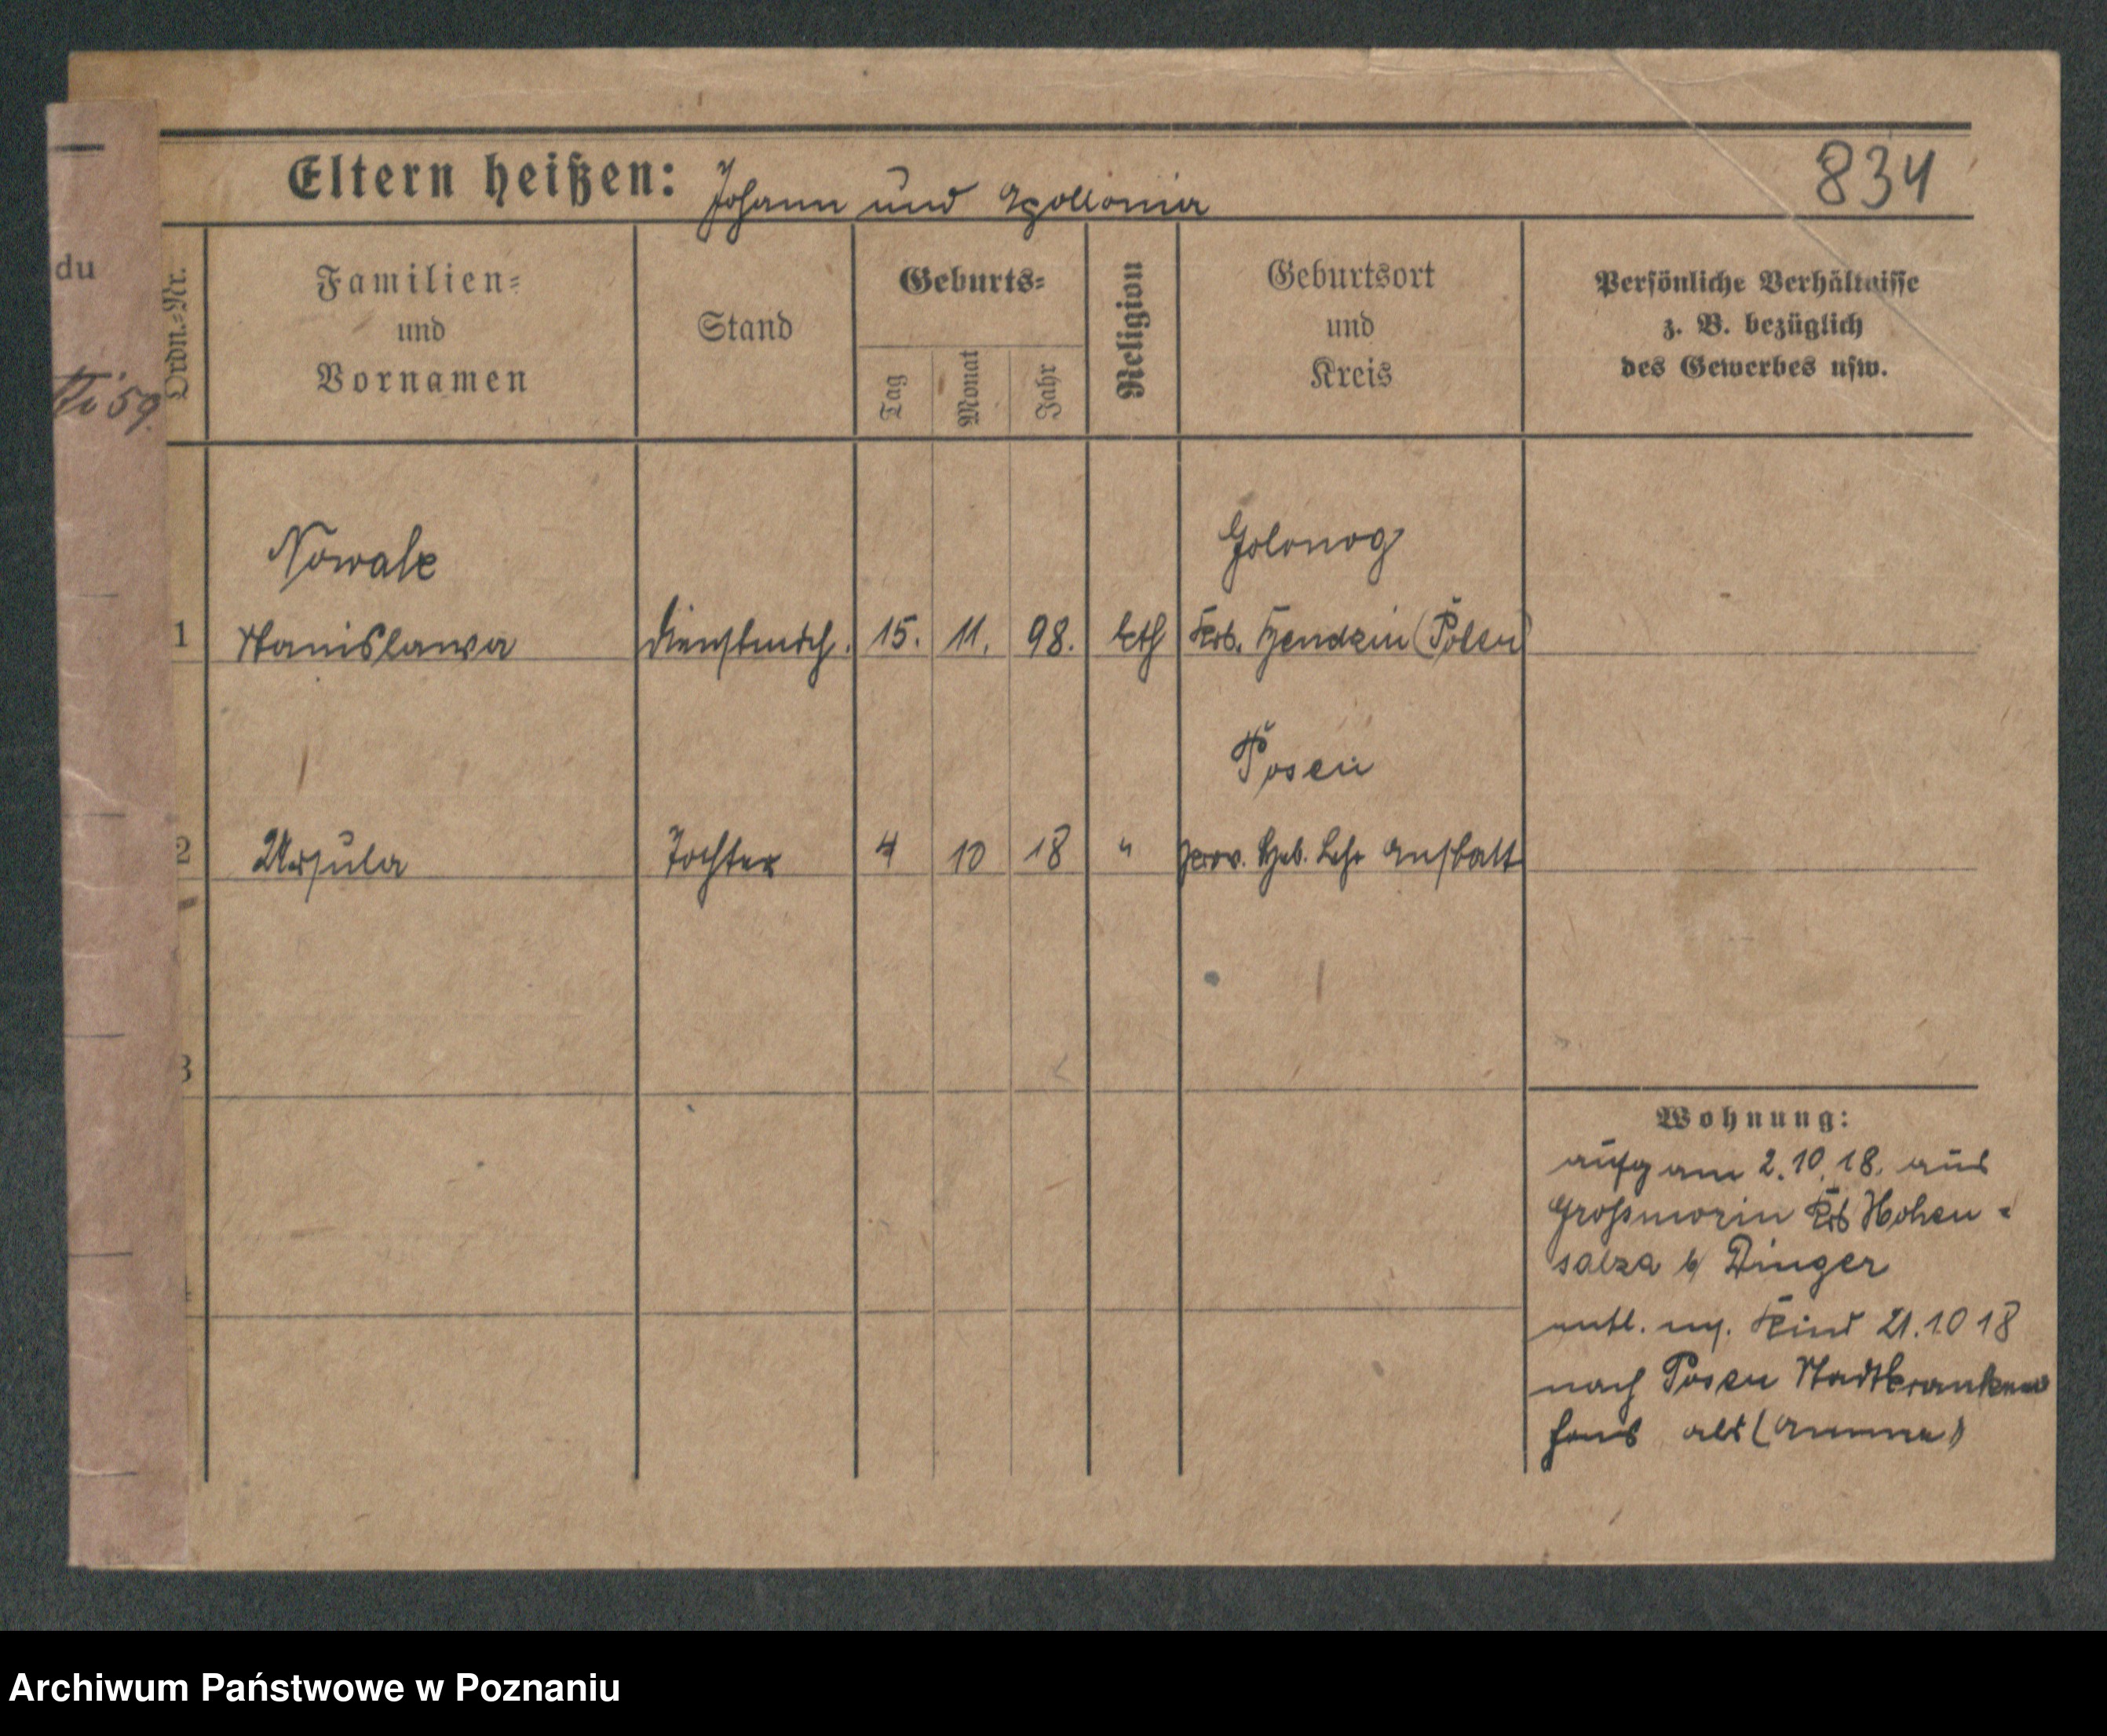 Eltern heißen: Johann und Apollonia
834
du
59
Ordn.-Nr.
Familien-
und
Vornamen
Stand
Geburts-
Tag
Monat
Jahr
Religion
Geburtsort
und
Kreis
Persönliche Verhältnisse
z. B. bezüglich
des Gewerbes usw.
Nowak
Golonog
1 Stanislawa Dienstmdch. 15. 11. 98. kth Krs. Bendzin (Polen)
Posen
2 Ursula Tochter 4 10 18 " prov. Heb. Lehr Anstalt
3
Wohnung:
aufg am 2.10.18. aus
Grosmorin Krs Hohen-
salza b/ Dinger
entl. m. Kind 21.10 18
nach Posen Stadtkranken
haus als (Amme)
Archiwum Państwowe w Poznaniu